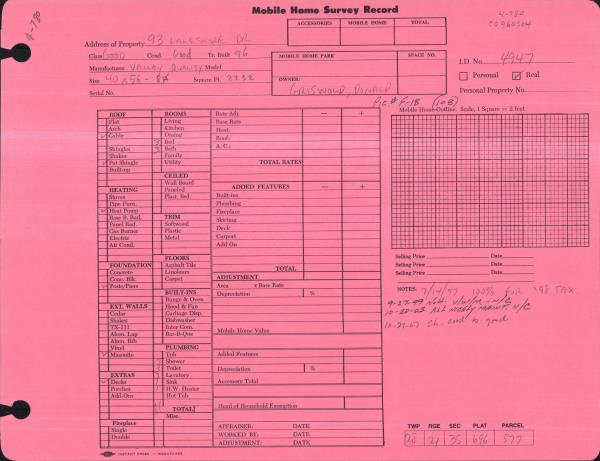 Mobile Home Survey Record
4-780
4-780
ACCESSORIES MOBILE HOME TOTAL
Address of Property 93 DR
Class Good Cond. Good Yr. Built 96
Manufacture Valley Quality Model
Size 40 x 56 - 8# Square Ft. 2232
Serial No.
MOBILE HOME PARK SPACE NO.
OWNER:
GRISWOLD, DONALD
I.D. No. 4947
Personal Real
Personal Property No.
Pic # F-18 (10B)
Mobile Home Outline. Scale, 1 Square = 2 feet
ROOF
Flat
Arch
Gable
Shingles
Shakes
Pat Shingle
Built-up
HEATING
Stoves
Pipe Furn.
Heat Pump
Base B. Rad.
Panel Rad.
Gas Burner
Electric
Air Cond.
FOUNDATION
Concrete
Conc. Blk.
Posts/Piers
EXT. WALLS
Cedar
Shakes
TX-111
Alum. Lap
Alum. Rib
Vinyl
Masonite
EXTRAS
Decks
Porches
Add-Ons
Fireplace
Single
Double
ROOMS
Living
Kitchen
Dining
3 Bed
3 Bath
Family
Utility
CEILED
Wall Board
Paneled
Plast. Brd.
TRIM
Softwood
Plastic
Metal
FLOORS
Asphalt Tile
Linoleum
Carpet
BUILT-INS
Range & Oven
Hood & Fan
Garbage Disp.
Dishwasher
Inter Com.
Bar-B-Que
PLUMBING
Tub
Shower
Toilet
Lavatory
Sink
H.W. Heater
Hot Tub
TOTAL
Misc.
Rate Adj. — +
Base Rate
Heat:
Roof:
A. C.:
TOTAL RATES
ADDED FEATURES — +
Built-ins
Plumbing
Fireplace
Skirting
Deck
Carport
Add On
TOTAL
ADJUSTMENT
Area x Base Rate
Depreciation %
Mobile Home Value
Added Features
Depreciation %
Accessory Total
Head of Household Exemption
APPRAISER: DATE
WORKED BY: DATE
ADJUSTMENT: DATE
Selling Price Date
Selling Price Date
Selling Price Date
NOTES: 7/14/97 100% FOR '98 TAX
9-27-99 N/C
10-22-02 N/C
10-29-07 Ch. cond to good
TWP RGE SEC PLAT PARCEL
20 21 35 686 577